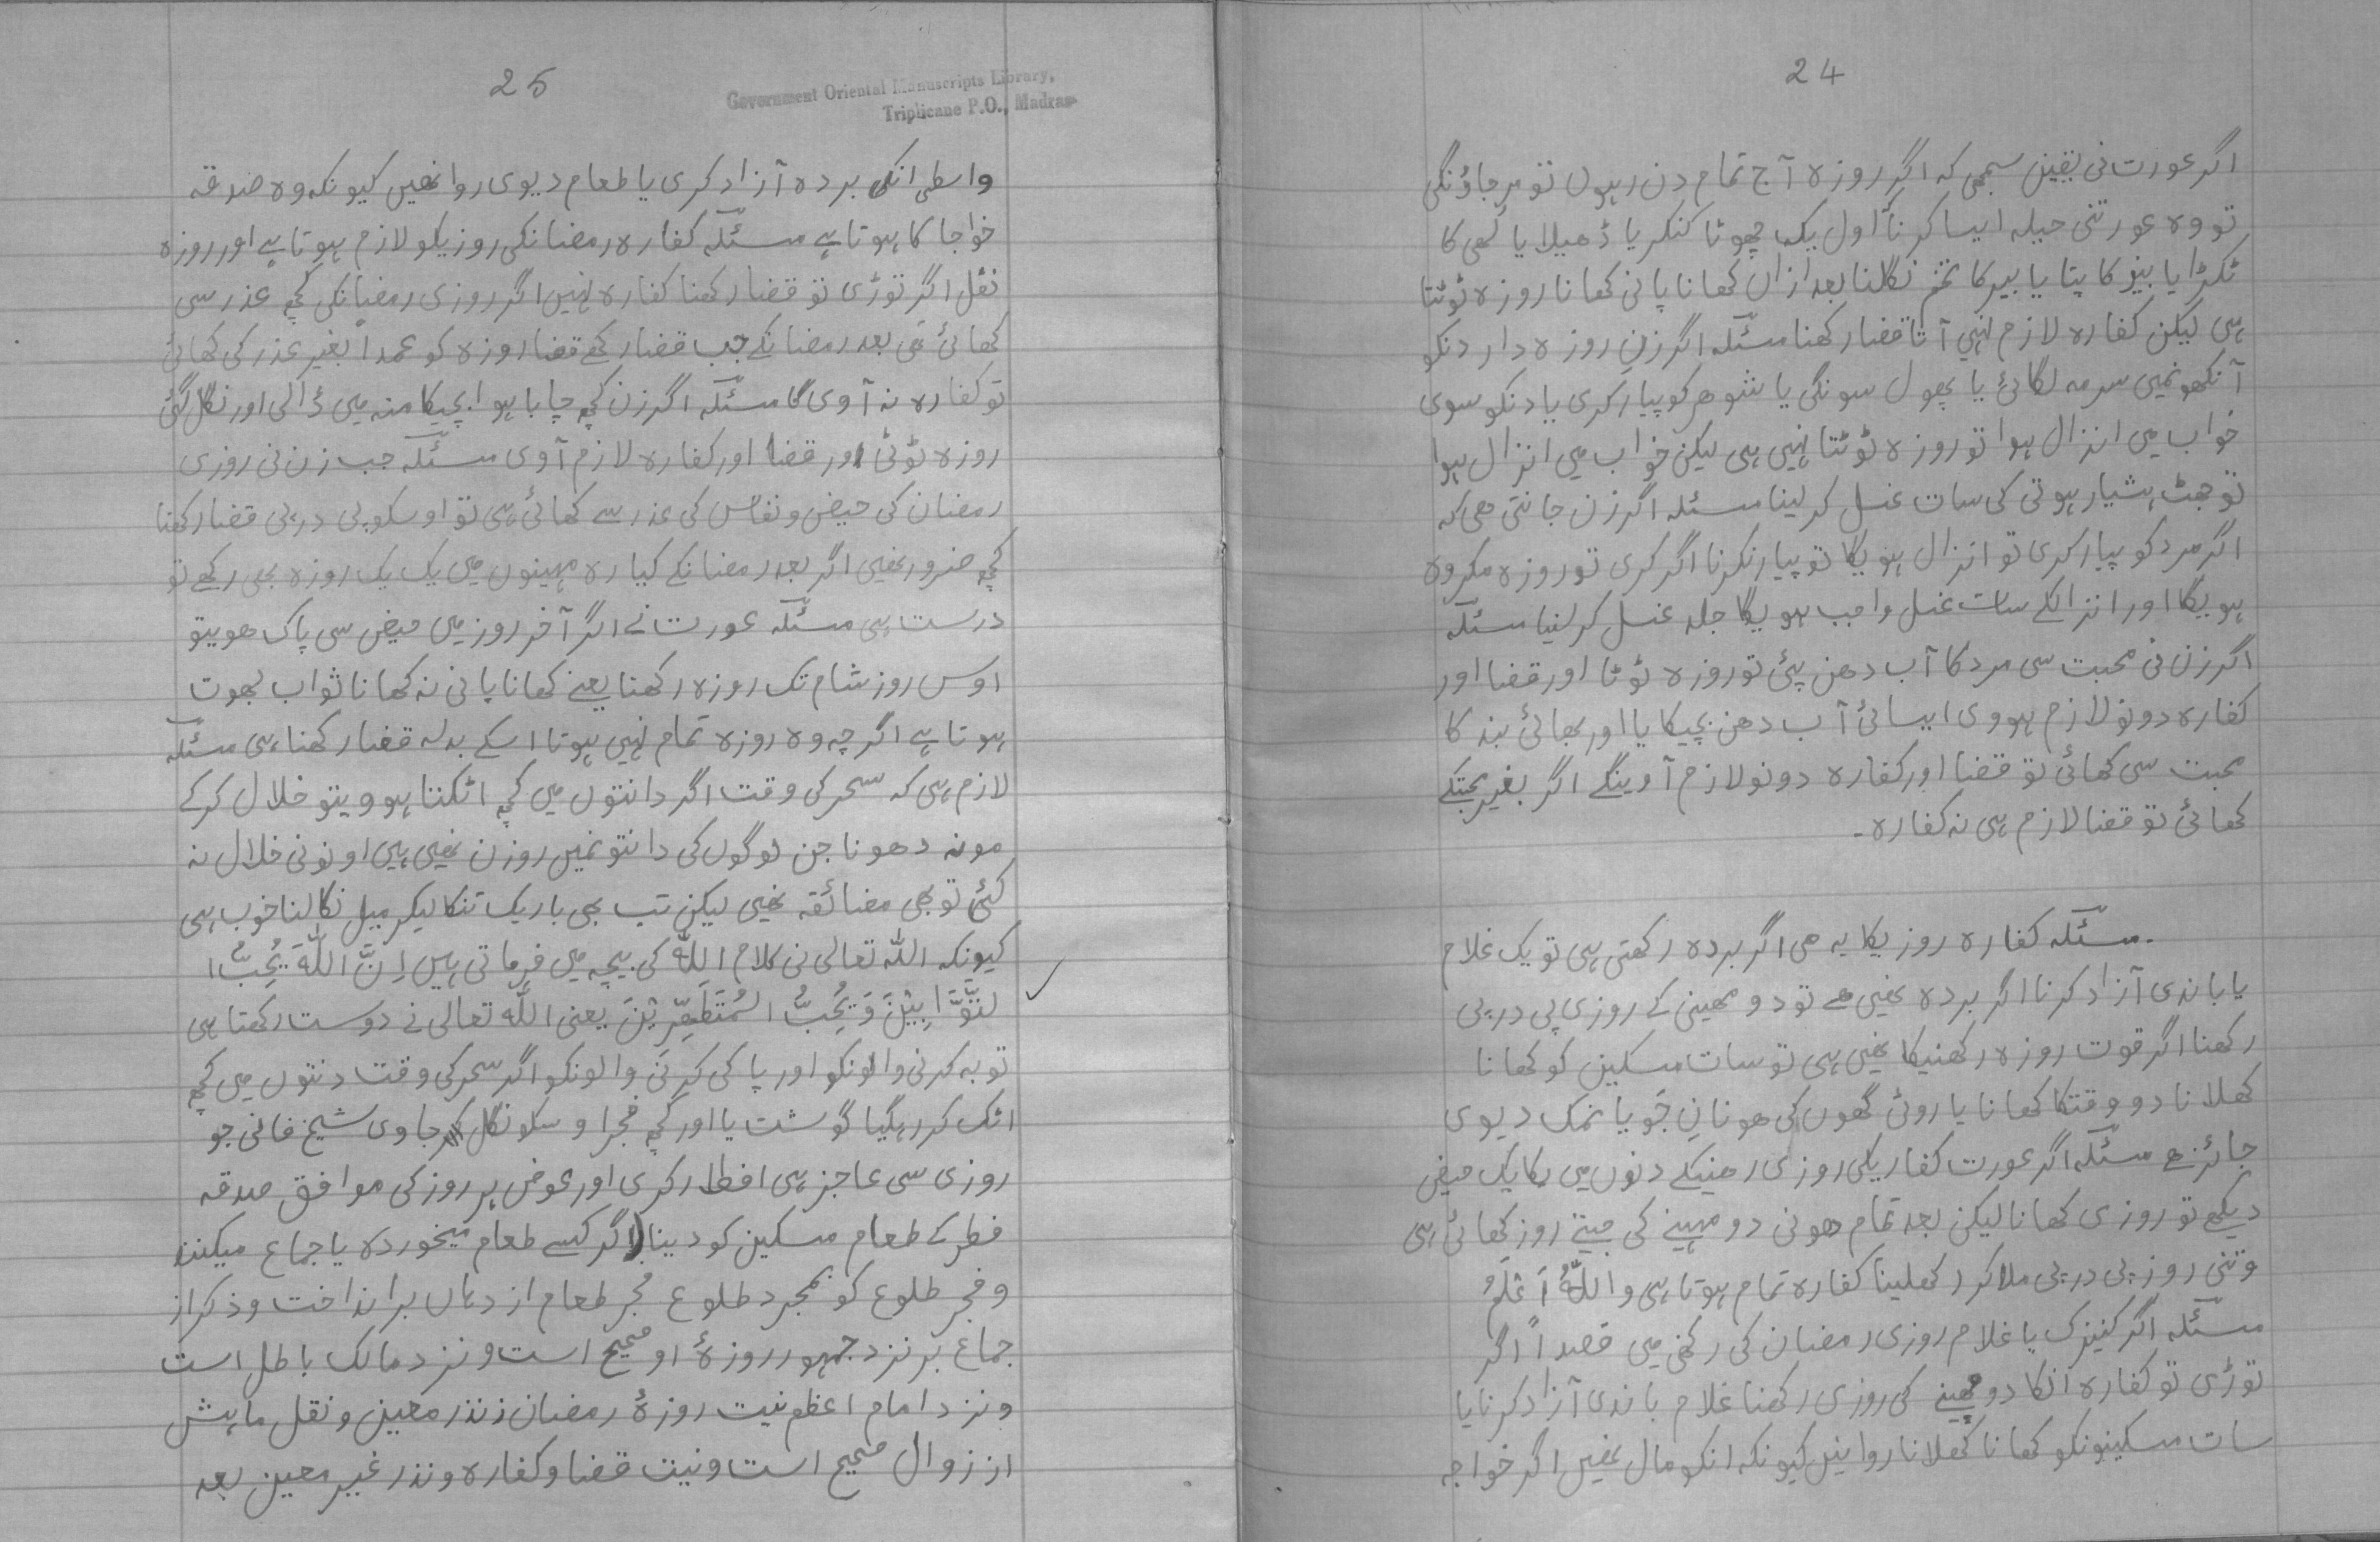 24
اگر عورت نی یقین سمجی که اگر روزه آج تمام دن رہوں تو مر جاؤنگی
تو وه عورتنی حیله ایسا کرنا اول یک چھوٹا کنکر یا ڈھیلا یا لهی کا
ٹکڑا یا بنبو کا پتا یا بیر کا تخم نگلنا بعد ازاں کھانا پانی کھانا روزه ٹوٹتا
ہی لیکن کفاره لازم نہیں آتا قضا رکھنا مسئله اگر زن روزه دار دنکو
آنکھونمیں سرمه لگائی یا پھول سونگی یا شوهر کو پیار کری یا دنکو سوی
خواب می انزال ہوا تو روزه ٹوٹتا نہیں ہی لیکن خواب می انزال ہوا
تو جھٹ ہشیار ہوتی کی سات غسل کر لینا مسئله اگر زن جانتی هی که
اگر مرد کو پیار کری تو انزال ہویگا تو پیار نکرنا اگر کری تو روزه مکروه
ہویگا اور انزالکے سات غسل واجب ہویگا جلد غسل کر لنیا مسئله
اگر زن نی محبت سی مرد کا آب دهن پئی تو روزه ٹوٹا اور قضا اور
کفاره دونو لازم ہووی ایسائی آب دهن بچیکا یا اور بھائی بند کا
محبت سی کھائی تو قضا اور کفاره دونو لازم آوینگے اگر بغیر محبتکے
کھائی تو قضا لازم ہی نه کفاره ۔
مسئله کفاره روزیکا یه هی اگر برده رکھتی ہی تو یک غلام
یا باندی آزاد کرنا اگر برده نھیں هے تو دو مھینی کے روزی پی در پی
رکھنا اگر قوت روزه رکھنیکا نھیں ہی تو سات مسکین کو کھانا
کھلانا دو وقتکا کھانا یا روٹی گھوں کی هو نان جَو یا نمک دیوی
جائز هے مسئله اگر عورت کفاریکی روزی رهنیکے دنوں می یکایک حیض
دیکھے تو روزی کھانا لیکن بعد تمام هونی دو مہینے کی جیتے روز کھائی ہی
وتنی روز پی در پی ملا کر رکھلینا کفاره تمام ہوتا ہی واللّٰهُ اَعْلَمُ
مسئله اگر کنیزک یا غلام روزی رمضان کی رکنی می قصداً اگر
توڑی تو کفاره انکا دو مھینے کی روزی رکھنا غلام باندی آزاد کرنا یا
سات مسکینونکو کھانا کھلانا روا نہیں کیونکه انکو مال نھیں اگر خواجه
25
Government Oriental Manuscripts Library,
Triplicane P.O., Madras
واسطی انکی برده آزاد کری یا طعام دیوی روا نھیں کیونکه وه صدقه
خواجا کا ہوتا ہے مسئله کفاره رمضانکی روزیکو لازم ہوتا ہے اور روزه
نفل اگر توڑی تو قضا رکھنا کفاره نہیں اگر روزی رمضانکی کچھ عذر سی
کھائی تھی بعد رمضانکے جب قضا رکھے قضا روزه کو عمداً بغیر عذر کی کھائی
تو کفاره نه آویگا مسئله اگر زن کچھ چابا ہوا بچیکا منه می ڈالی اور نگل گئی
روزه ٹوٹی اور قضا اور کفاره لازم آوی مسئله جب زن نی روزی
رمضان کی حیض و نفاس کی عذر سے کھائی ہی تو اوسکو پی در پی قضا رکھنا
کچھ ضرور نھیں اگر بعد رمضانکے گیاره مہینوں می یک یک روزه بھی رکھے تو
درست ہی مسئله عورت نے اگر آخر روز می حیض سی پاک هویتو
اوس روز شام تک روزه رکھنا یعنے کھانا پانی نه کھانا ثواب بھوت
ہوتا ہے اگرچه وه روزه تمام نہیں ہوتا اسکے بدله قضا رکھنا ہی مسئله
لازم ہی که سحر کی وقت اگر دانتوں می کچھ اٹکتا ہوویتو خلال کرکے
مونه دھونا جن لوگوں کی دانتونمیں روزن نھیں ہیں اونونی خلال نه
کئی تو بھی مضائقه نھیں لیکن تب بھی باریک تنکا لیکر میل نکالنا خوب ہی
کیونکه اللّٰه تعالی نی کلام اللّٰه کی بیچه می فرماتی ہیں اِنَّ اللّٰهَ یُحِبُّ ا
لتَّوَّابِیْنَ وَیُحِبُّ الْمُتَطَهِّرِیْنَ یعنی اللّٰه تعالی نے دوست رکھتا ہی
توبه کرنی والونکو اور پاکی کرنی والونکو اگر سحر کی وقت دنتوں می کچھ
اٹک کر رہگیا گوشت یا اور کچھ فجر اوسکو نگل کر جاوی شیخ فانی جو
روزی سی عاجز ہی افطار کری اور عوض ہر روز کی موافق صدقه
فطر کے طعام مسکین کو دینا (اگر کسے طعام میخورده یا جماع میکند
و فجر طلوع کو بمجرد طلوع فجر طعام از دہاں بر انداخت و ذکر از
جماع بر نزد جمہور روزۀ او صحیح است و نزد مالک باطل است
و نزد امام اعظم نیت روزۀ رمضان و نذر معین و نفل تا پیش
از زوال صحیح است و نیت قضا و کفاره و نذر غیر معین بعد